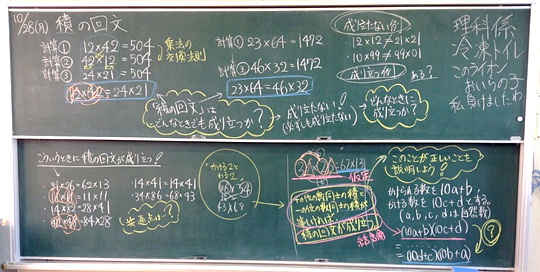 10/28(月) 積の回文
計算① 12×42=504
計算② 42×12=504
計算③ 24×21=504
乗法の
交換法則
12×42=24×21
計算① 23×64=1472
計算③ 46×32=1472
23×64=46×32
成り立たない例
12×12≠21×21
10×99≠99×01
成り立つ例 ある?
「積の回文」は
どんなときでも成り立つか?
成り立たない!
(必ずしも成り立たない)
どんなときに
成り立つか?
理科係
冷凍トイレ
このライオン
おいらの子
私負けましたわ
こういうときに積の回文が成り立つ!
・31×26=62×13
・11×11=11×11
・14×82=28×41
・48×42=24×84
・14×41=14×41
・34×86=68×43
共通点は?
26=62×31
仮定
十の位の数同士の積と
一の位の数同士の積が
等しければ
積の回文が成り立つ
結論
このことが正しいことを
説明しよう!
かけられる数を10a+b、
かける数を10c+dとする。
(a,b,c,dは自然数)
(10a+b)(10c+d)
=……
=(10d+c)(10b+a)
?